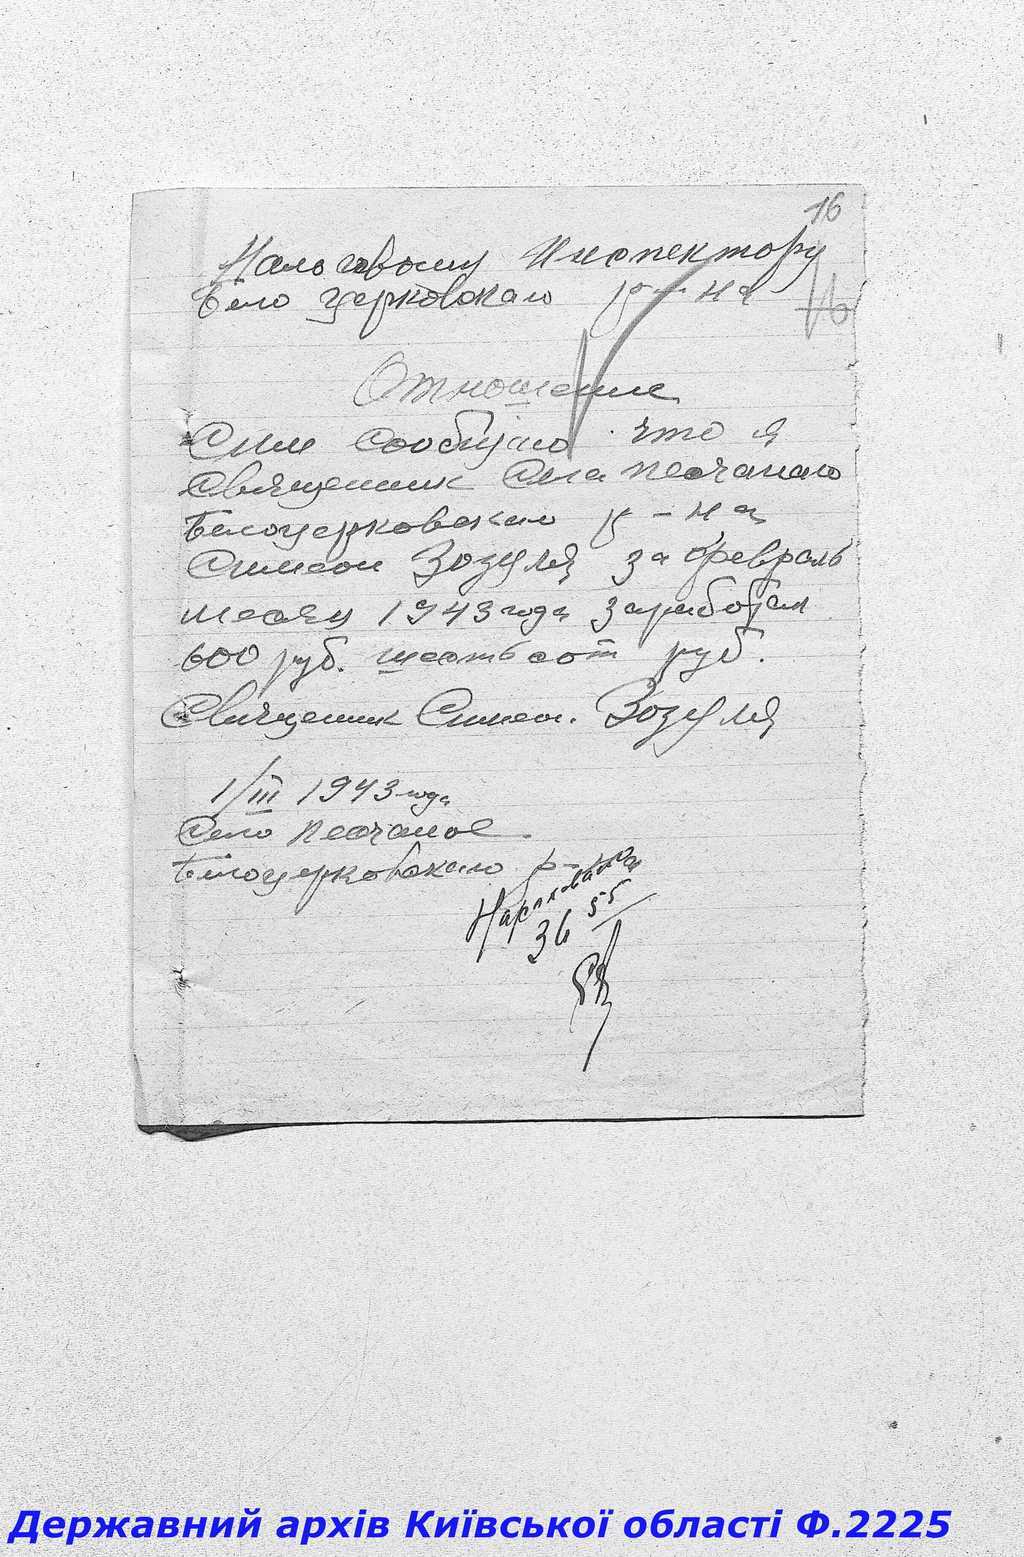 16
Налоговому Инспектору
Бело церковскаго р-на
16
Отношение
Сим сообщаю что я
Священник Села Песчанаго
Белоцерковскаго р-на
Симеон Зозуля за февраль
месяц 1943 года заработал
600 руб. шестьсот руб.
Священник Симеон. Зозуля
1/III 1943 года
Село Песчаное
Белоцерковскаго р-на
Нараховано
36 55
Державний архів Київської області Ф.2225